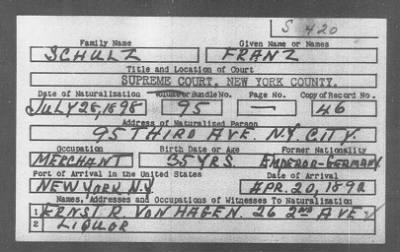 S 420
Family Name Given Name or Names
SCHULZ FRANZ
Title and Location of Court
SUPREME COURT, NEW YORK COUNTY.
Date of Naturalization Volume or Bundle No. Page No. Copy of Record No.
JULY 28, 1898 95 — 46
Address of Naturalized Person
95 THIRD AVE. N.Y. CITY.
Occupation Birth Date or Age Former Nationality
MERCHANT 35 YRS. EMPEROR-GERMANY
Port of Arrival in the United States Date of Arrival
NEW YORK N.Y. APR. 20, 1892
Names, Addresses and Occupations of Witnesses To Naturalization
1 ERNST R. VON HAGEN. 26 2ND AVE
2 LIQUOR